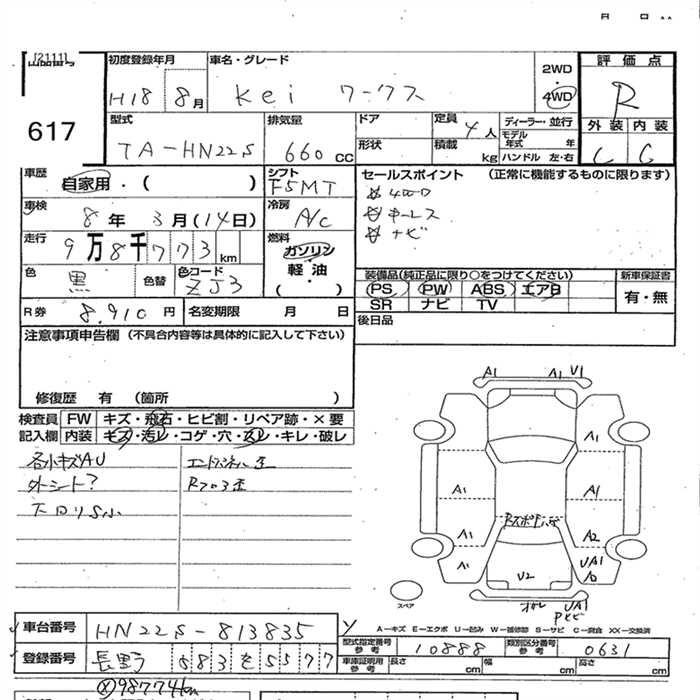 [2111]
617
初度登録年月 車名・グレード 2WD・4WD 評価点
H18 8月 Kei ワークス R
型式 排気量 ドア 定員 ディーラー・並行 外装 内装
TA-HN22S 660cc 形状 4人 積載 kg モデル年式 年 ハンドル 左・右 C C
車歴 自家用・( ) シフト F5MT セールスポイント (正常に機能するものに限ります)
車検 8年3月(14日) 冷房 A/C
☆ 4WD
☆ キーレス
☆ ナビ
走行 9万8千773km 燃料 ガソリン・軽油 ( ・ )
色 黒 色替 色コード ZJ3
装備品(純正品に限り○をつけてください) 新車保証書
PS PW ABS エアB 有・無
SR ナビ TV
R券 8,910円 名変期限 月 日 後日品
注意事項申告欄 (不具合内容等は具体的に記入して下さい)
修復歴 有 (箇所 )
検査員 FW キズ・飛石・ヒビ割・リペア跡・×要
記入欄 内装 キズ・汚レ・コゲ・穴・スレ・キレ・破レ
各小キズAU エンドパネル歪
外シート? Rフロア歪
下回りS小
A1 A1 U1
A1
A1 A1
A1 A2
A1 UA1
U2
スペア
A-キズ E-エクボ U-凹み W-補修跡 S-サビ C-腐食 XX-交換済
車台番号 HN22S-813835 型式指定番号 参考 10888 類別区分番号 参考 0631
登録番号 長野 583 を 5577 車庫証明用 参考 長さ cm 幅 cm 高さ cm
98774km